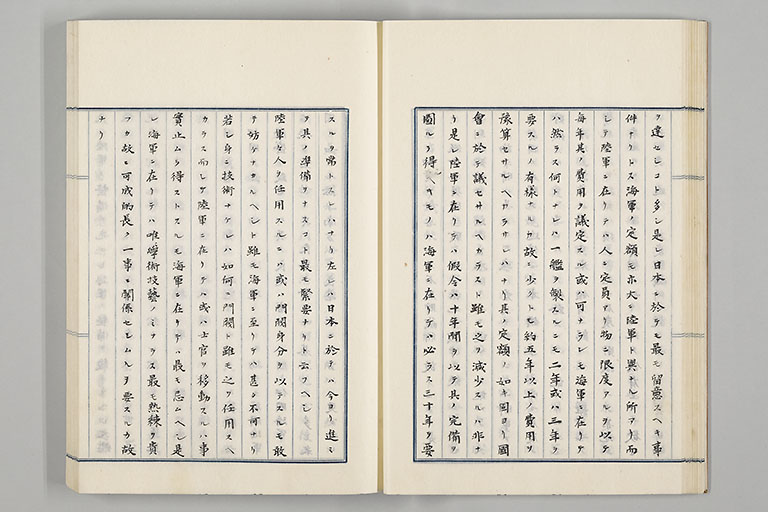 ヲ逹セシコト多シ是レ日本ニ於テモ最モ留意スヘキ事
件ナリトス海軍ノ定額モ亦大ニ陸軍ト異ナル所アリ而
シテ陸軍ニ在リテハ人ニ定員アリ物ニ限度アルヲ以テ
毎年其ノ費用ヲ議定スル或ハ可ナラレモ海軍ニ在リテ
ハ然ラス何トナレハ一艦ヲ製スルニモ二年或ハ三年ヲ
要スルノ有樣ナルカ故ニ少クトモ約五年以上ノ費用ヲ
豫算セサルヘカラサレハナリ其ノ定額ノ如キ固ヨリ國
會ニ於テ議セサルヘカラスト雖モ之ヲ減少スルハ非ナ
リ是レ陸軍ニ在リテハ假令ハ十年間ヲ以テ其ノ完備ヲ
圖ルヲ得ヘキモノハ海軍ニ在リテハ必ラス三十年ヲ要
スルヲ常トスレハナリ左レハ日本ニ於テハ今ヨリ進ミ
テ其ノ準備ヲナスコト最モ緊要ナリト云フヘシ
陸軍ハ人ヲ任用スルニハ或ハ門閥身分ヲ以テスルモ敢
テ妨ケナカルヘシト雖モ海軍ニ至リテハ甚タ不可ナリ
若シ身ニ技術ナケレハ如何ニ門閥ト雖モ之ヲ任用スヘ
カラス而シテ陸軍ニ在リテハ或ハ士官ヲ移動スルハ事
實止ムヲ得ストスルモ海軍ニ在リテハ最モ忌ムヘシ是
レ海軍ニ在リテハ唯學術技藝ノミナラス最モ熟練ヲ貴
フカ故ニ可成的長ク一事ニ關係セシムルヲ要スルカ故
ナリ